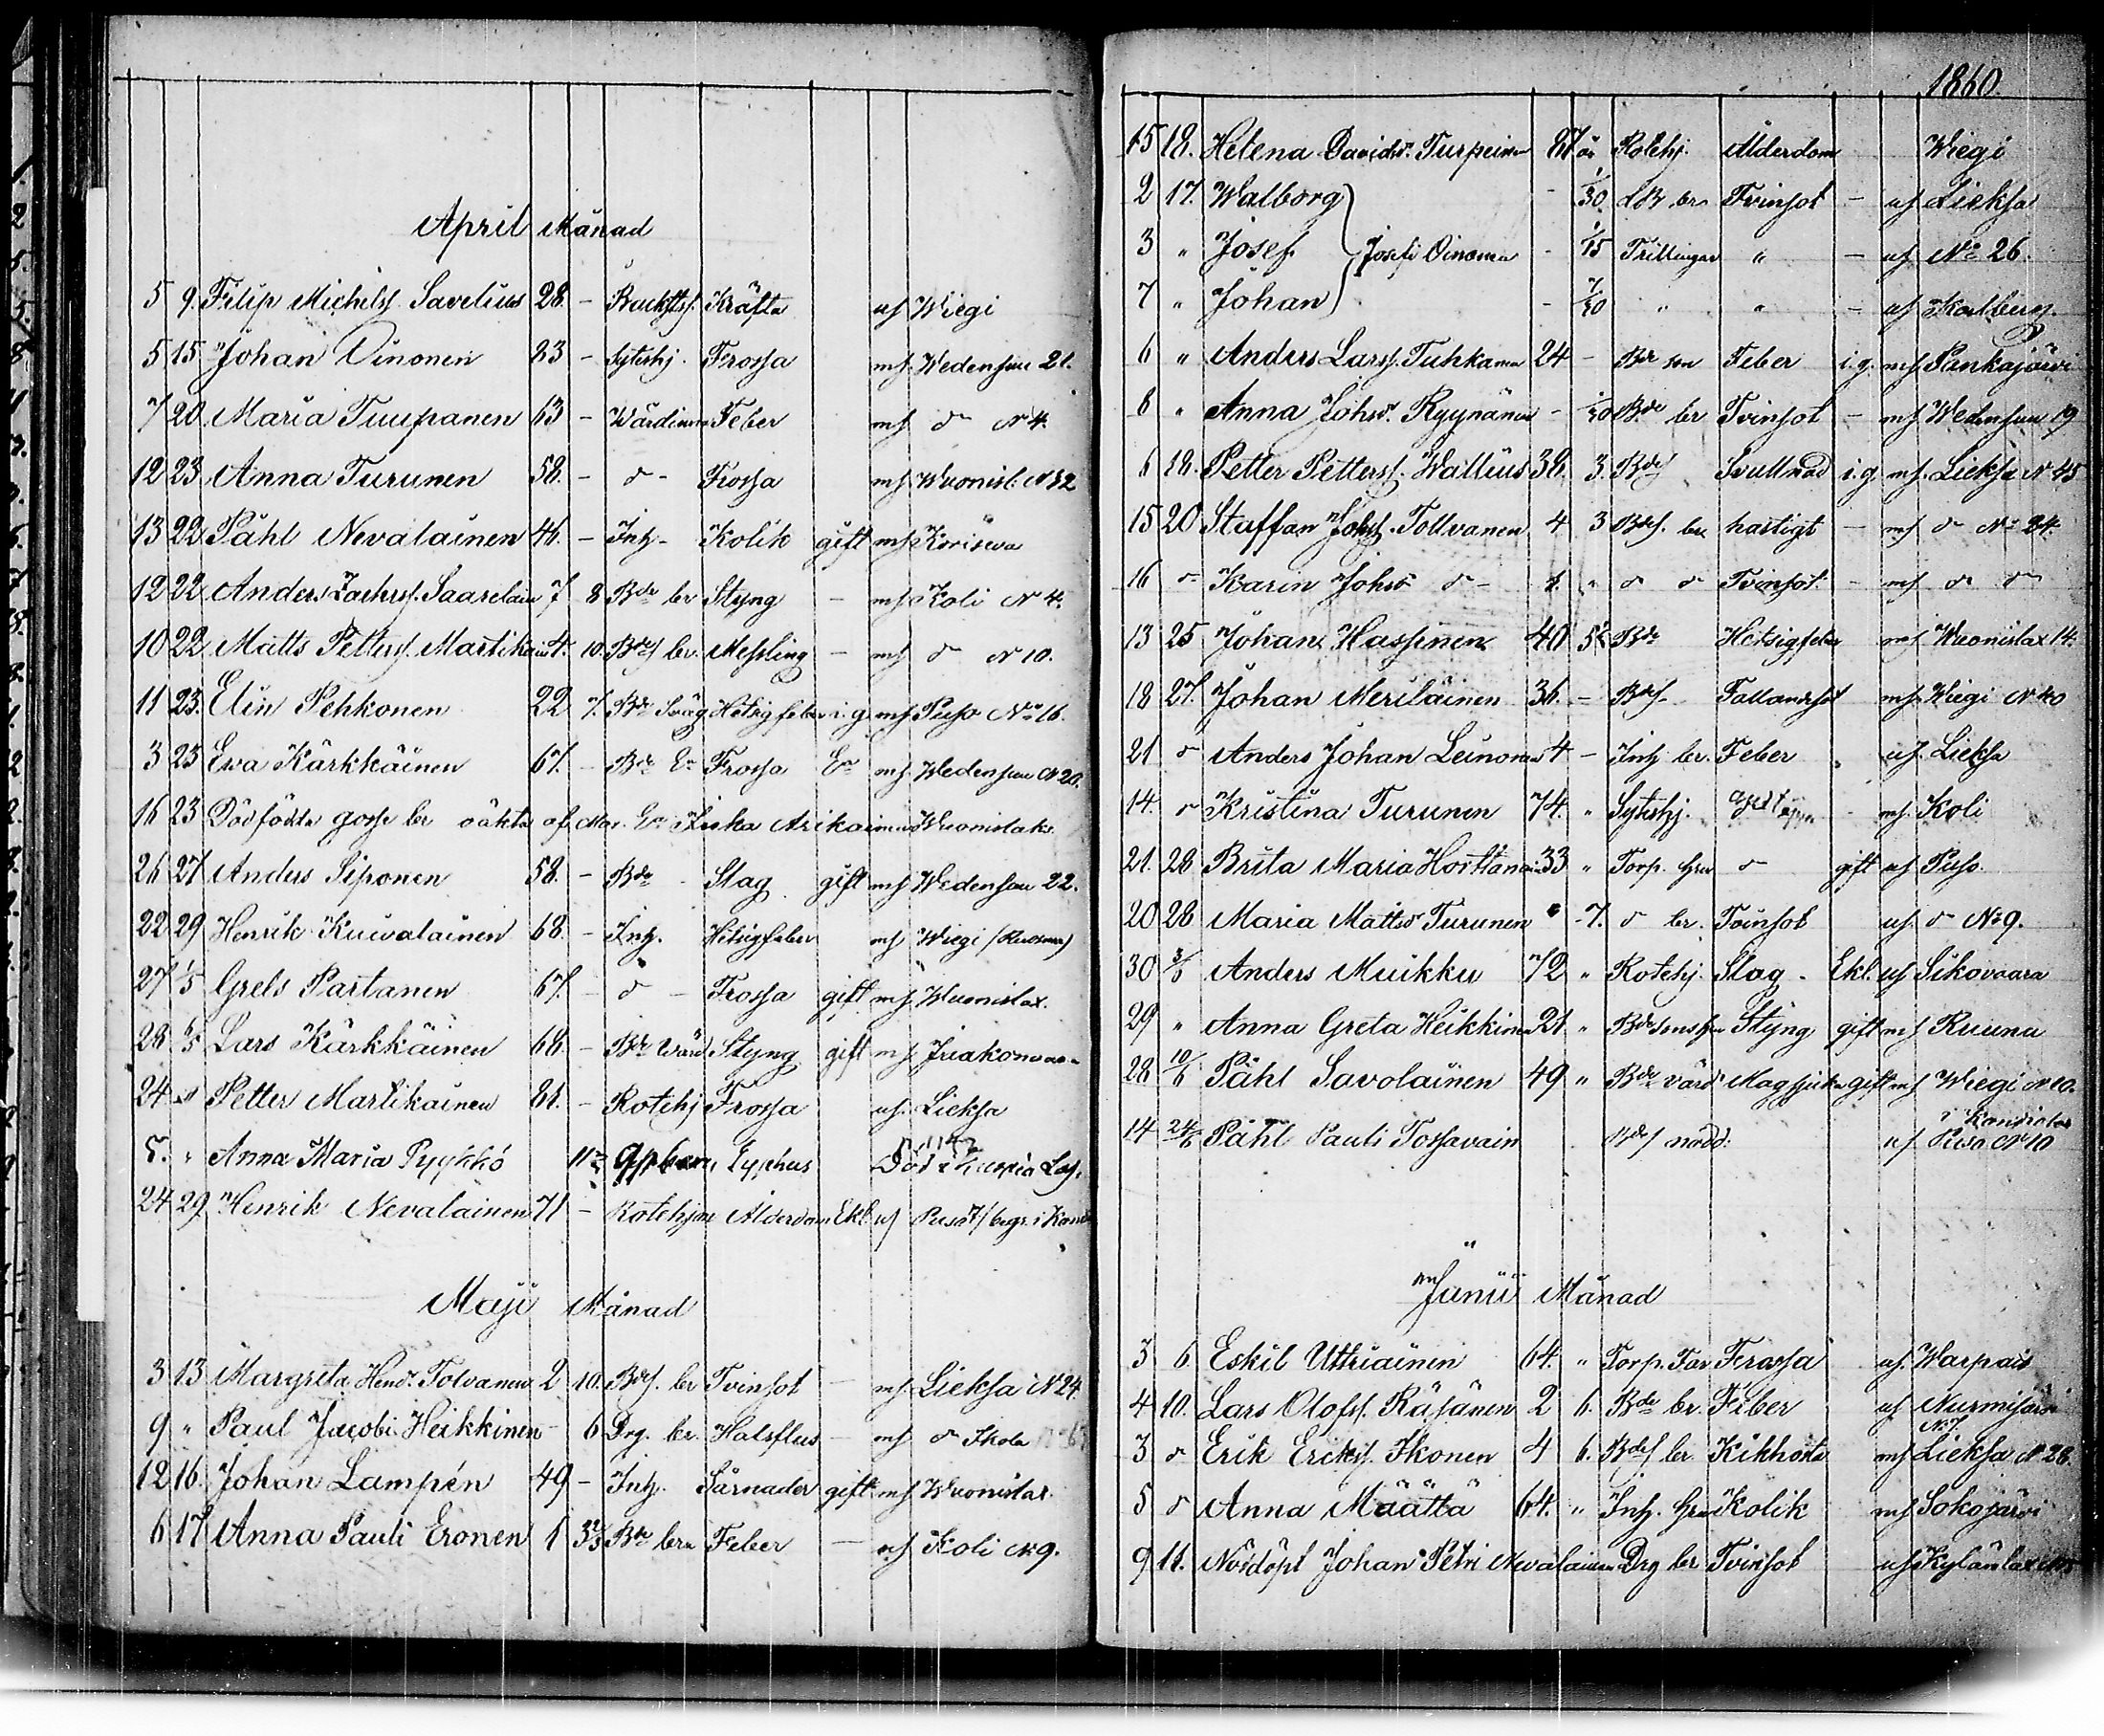 April Månad
5 9. Filip Michelss. Savelius 28. - Backsttss. Kräfta uf Wiegi
5 15 Johan Oinonen 83 - Sytnhj. Frossa mf Wedensuu 21.
7 20 Maria Tuupanen 63 - Wärdinna Feber mf d:o N 4.
12 23 Anna Turunen 58. - d:o - Frossa mf Wuonisl. N 32
13 22 Påhl Nevalainen 46. - Inh. Kolik gift mf Koriseva
12 22 Anders Zachrss. Saarelain 7 8 Bde br Styng - mf Koli N 4.
10 22 Matts Petterss. Martikain 4. 10. Bdes br. Messling - mf d:o N 10.
11 23. Elin Pehkonen 22 7. Bde Svåg Hetsigfeber i.g. mf Puso No 16.
3 23 Ewa Kärkkäinen 67. - Bde E:a Frossa E:a mf Wedensuu N 20.
16 23 Dödfödda gosse br oäkta af Mar. E:a Liska Arikainen Wuonislaks
26 27 Anders Siponen 58. - Bde Slag gift mf Wedensuu 22.
22 29 Henrik Kuivalainen 68. - Inh. Hetsigfeber mf Wiegi
27 1/5 Grels Partanen 67. - d:o - Frossa gift mf Wuonislax.
28 6/5 Lars Kärkkäinen 68. - Bde Wärd Styng gift mf
24 d:o Petter Martikainen 81. - Rotehj Frossa uf. Lieksa
5. " Anna Maria Pyykkö Typhus Död i Kuopio Las.
24 29 Henrik Nevalainen 71 - Rotehjon Ålderdom Ekl uf Puso 7/ begr. i Kont
Maji Månad
3 13 Margreta Hend. Tolvanen 2 10. Bdes. br Tvinsot - mf Lieksa N 24
9 " Paul Jacobi Heikkinen - 6 Drg. br. Halsflus - mf d:o Skola
12 16. Johan Lampén 49 - Inh. Sårnader gift mf Wuonislax.
6 17 Anna Pauli Eronen 1 3 2/3 Bde brn Feber - uf Koli N 9.
1860.
15 18. Helena Davidsd. Turpeinen 87 år Rotehj. Ålderdom Wiegi
2 17. Walborg - 1/30 br Tvinsot - uf Lieksa
3 " Josef } Josefi Oinonen - 1/15 Trillingar " - uf No 26.
7 " Johan - 7/30 " " - uf
6 " Anders Larss. Tuhkanen 24 - Bde son Feber i.g. mf Pankajärvi
8 " Anna Johsd. Ryynänen - Bde br Tvinsot - mf Wedensuu 19
6 18. Petter Petterss. Wallius 38. 3. Bdes Svullnad i.g. mf. Lieksa N 45
15 20 Staffan Johss. Tollvanen 4 3 Bdes. br hastigt - mf d:o No 24.
16 d:o Karin Johsd d:o - 1. " d:o d:o Tvinsot - mf d:o d:o
13 25 Johan Hassinen 40 5 1/2 Bde Hetsigfeber mf Wuonislax 14.
18 27. Johan Meriläinen 36. - Bdes. Fallandesot mf Wiegi N 40
21 d:o Anders Johan Leinonen 4 - Inh br. Feber uf. Lieksa
14. d:o Kristina Turunen 74. " Sytnhj. - mf. Koli
21. 28 Brita Maria Horttanain 33 " Torp. hru d:o gift uf Puso.
20 28 Maria Mattsd Turunen 7. d:o br. Tvinsot uf. d:o No 9.
30 3/6 Anders Muikku 72 " Rotehj. Slag - Ekl. uf Sikovaara
29 " Anna Greta Heikkinen 21. " Bdesonshu Styng gift mf Ruuna
28 10/6 Påhl Savolainen 49 " Bde värd Magsjuka gift mf Wiegi N 10.
14 24/6 Påhl Pauli Tossavain Bdes nödd: i Kontiolax uf Puso No 10
Junii Månad
3 6 Eskil Uttriainen 64. " Torp. Far Frossa uf. Warpais
4 10. Lars Olofss. Räsänen 2 6. Bde br. Feber uf Nurmijärvi N 7
3 d:o Erik Erickss. Ikonen 4 6. Bdes br. Kikhosta mf Lieksa N 28.
5 d:o Anna Määttä 64. " Inh. hru Kolik mf Sokojärvi
9 11. Nöddöpt Johan Petri Nevalainen Drg br Tvinsot uf Kylänlax